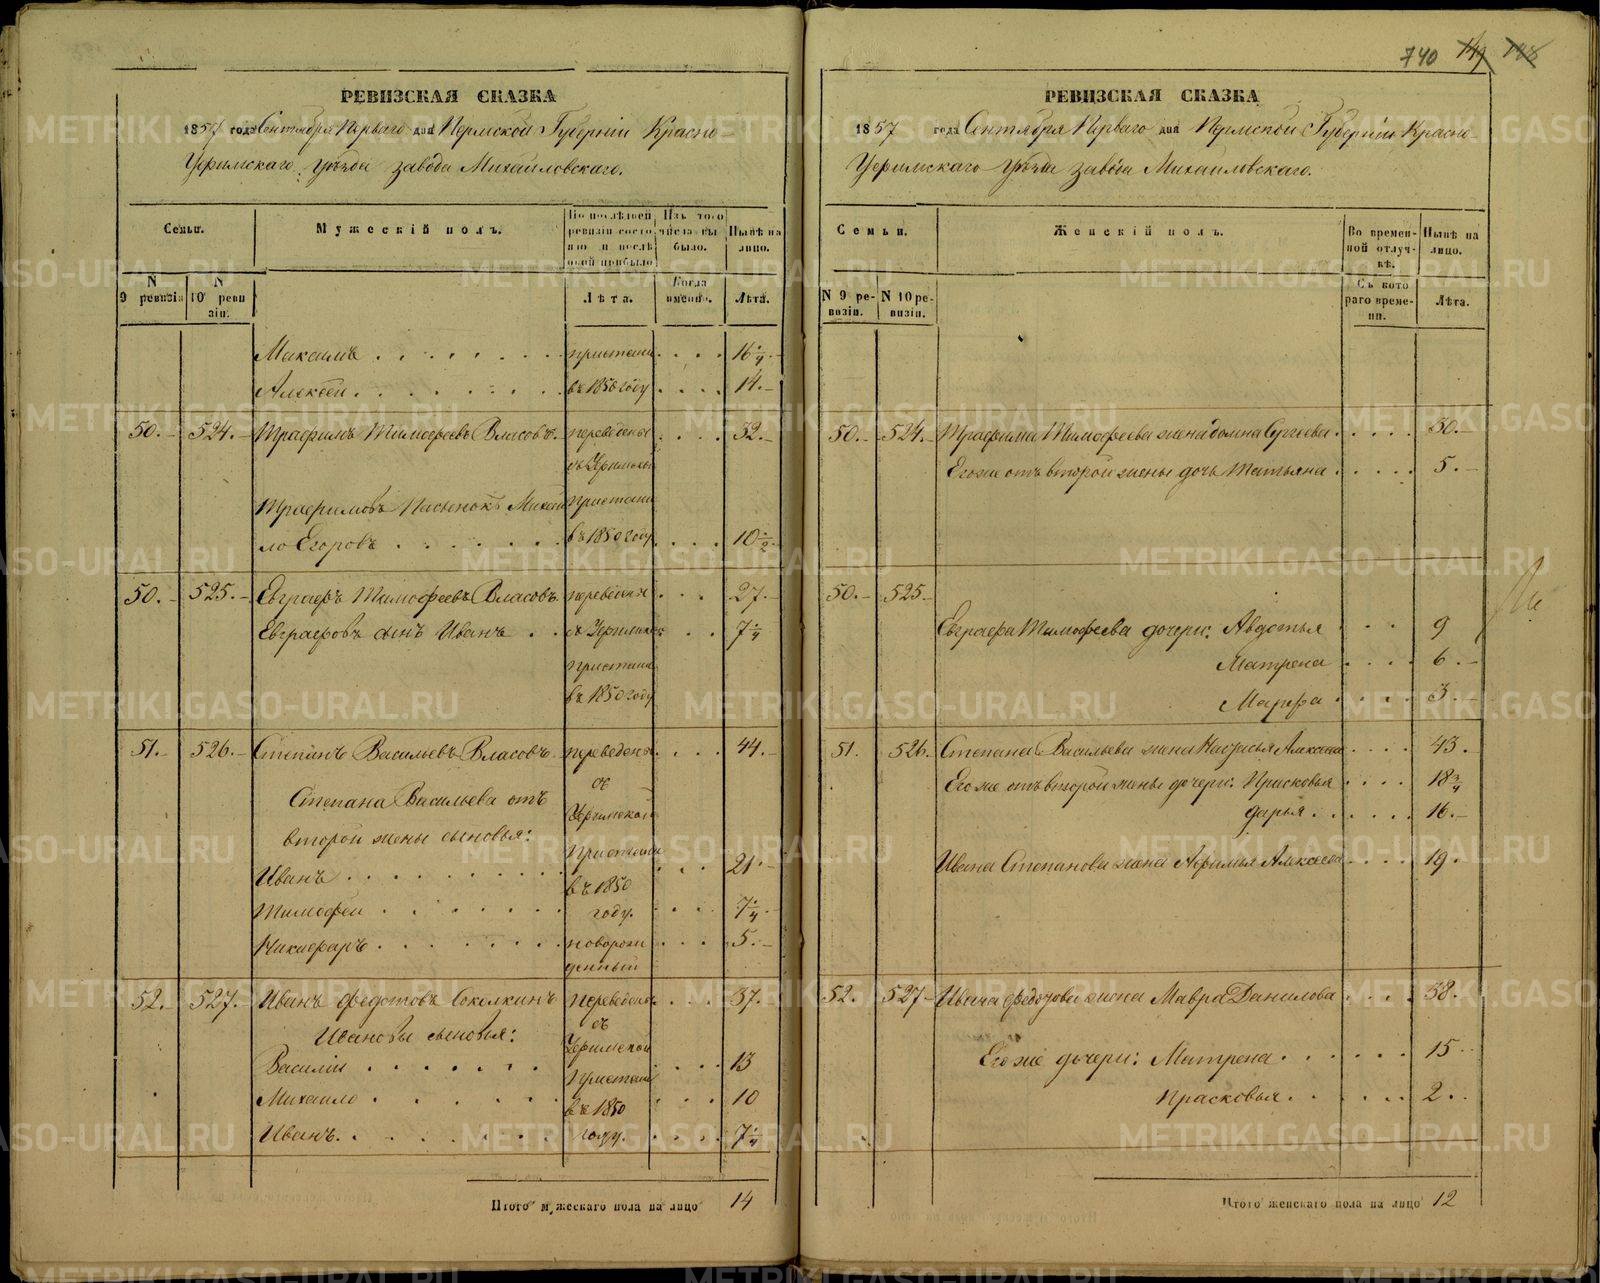 740 149 148
РЕВИЗСКАЯ СКАЗКА
1857 года Сентября Перваго дня Пермской Губерніи Красно-
Уфимскаго Уѣзда завода Михайловскаго.
Семьи.
Мужескій полъ.
По послѣдней ревизіи состояло и послѣ оной прибыло
Изъ того числа выбыло.
Нынѣ на лицо.
N 9 ревизіи
N 10 ревизіи.
Лѣта.
Когда именно.
Лѣта.
Максимъ . . . . . . . пристани . . . . 16 1/4
Алексѣй . . . . . . . въ 1850 году . . . . 14.-
50.- 524.- Трафимъ Тимофеевъ Власовъ. переведены . . . . 32.-
съ Уфимской
Трафимовъ Пасынокъ Михай пристани
ло Егоровъ . . . . . . въ 1850 году . . . . 10 1/2
50.- 525.- Евграфъ Тимофеевъ Власовъ. переведены . . . 27.-
Евграфовъ сынъ Иванъ . . съ Уфимской . . 7 1/4
пристани
въ 1850 году
51.- 526.- Степанъ Васильевъ Власовъ. переведены . . . 44.-
съ
Степана Васильева отъ
Уфимской
второй жены сыновья:
пристани
Иванъ . . . . . . . . . . . . 21.-
въ 1850
Тимофей . . . . . . . году. . . . . 7 1/4
Никифаръ . . . . . . . новорож . . . 5.-
денный
52.- 527.- Иванъ Федотовъ Соколкинъ переведены . . . 37.-
съ
Ивановы сыновья:
Уфимской
Василій . . . . . . . . . . . 13
пристани
Михайло . . . . . . . . . . 10
въ 1850
Иванъ . . . . . . . году. . . . . 7 1/4
Итого мужескаго пола на лицо 14
РЕВИЗСКАЯ СКАЗКА
1857 года Сентября Перваго дня Пермской Губерніи Красно-
Уфимскаго Уѣзда завода Михайловскаго.
Семьи.
Женскій полъ.
Во временной отлучкѣ.
Нынѣ на лицо.
N 9 ревизіи.
N 10 ревизіи.
Съ котораго времени.
Лѣта.
50.- 524.- Трафима Тимофеева жена Домна Сергѣева . . . . . 30.-
Его же отъ второй жены дочь Татьяна . . . . . 5.-
50.- 525.-
Евграфа Тимофеева дочери: Авдотья . . . . 9
Матрена . . . . 6.-
Марфа . . . . . 3.-
51. 526. Степана Васильева жена Настасья . . . . 43.
Его же отъ второй жены дочери: Прасковья . . . . 18 3/4
Дарья . . . . . . 16.-
Ивана Степанова жена Афимья Алексѣева . . . . 19.
52. 527.- Ивана Федотова жена Мавра Данилова . . . . 38.-
Его же дочери: Матрена . . . . . . 15
Прасковья . . . . . . 2..
Итого женскаго пола на лицо 12
METRIKI.GASO-URAL.RU